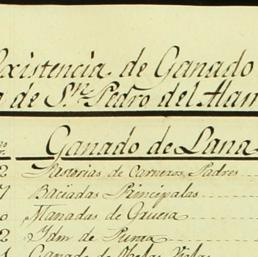 Existencia de Ganado
de Sn. Pedro del Alam
Ganado de Lana
2 Pastorias de Carneros Padres
7 Baciadas Principales
Manadas de Gruesa
2 Idm de Punta
Ganado de Obejas Viejas